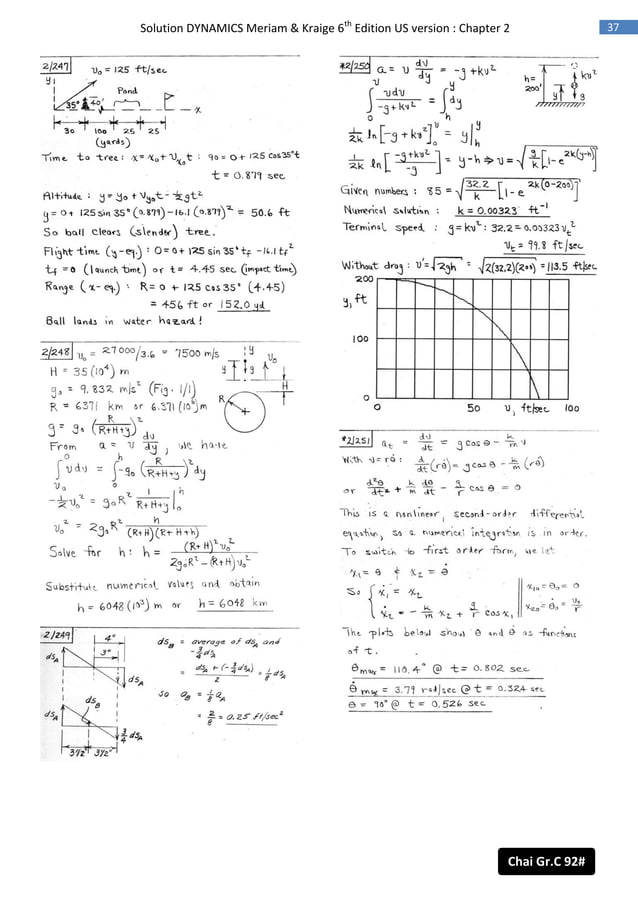 Solution DYNAMICS Meriam & Kraige 6th Edition US version : Chapter 2
37
2/247
v₀ = 125 ft/sec
y
Pond
35°
40'
x
30 100 25 25
(yards)
Time to tree: x = x₀ + v_{x₀}t : 90 = 0 + 125 cos35°t
t = 0.879 sec
Altitude : y = y₀ + v_{y₀}t - ½gt²
y = 0 + 125 sin 35° (0.879) - 16.1 (0.879)² = 50.6 ft
So ball clears (slender) tree.
Flight time (y-eq.) : 0 = 0 + 125 sin 35° t_f - 16.1 t_f²
t_f = 0 (launch time) or t = 4.45 sec (impact time)
Range (x-eq.) : R = 0 + 125 cos 35° (4.45)
= 456 ft or 152.0 yd
Ball lands in water hazard!
2/248
v₀ = 27000/3.6 = 7500 m/s
H = 35(10⁴) m
g₀ = 9.832 m/s² (Fig. 1/1)
R = 6371 km or 6.371(10⁶) m
y
v₀
y
g
H
R
g = g₀ (R/(R+H+y))²
From a = v dv/dy , we have
∫_{v₀}^{0} v dv = ∫_{0}^{h} -g₀ (R/(R+H+y))² dy
-½v₀² = g₀R² 1/(R+H+y) |₀^h
v₀² = 2g₀R² h/((R+H)(R+H+h))
Solve for h: h = (R+H)²v₀²/(2g₀R² - (R+H)v₀²)
Substitute numerical values and obtain
h = 6048 (10³) m or h = 6048 km
2/249
4"
3"
ds_A
ds_A
ds_B
ds_A
¾ ds_A
3½" 3½"
ds_B = average of ds_A and
-¾ ds_A
= (ds_A + (-¾ ds_A))/2 = ⅛ ds_A
so a_B = ⅛ a_A
= 2/8 = 0.25 ft/sec²
*2/250
a = v dv/dy = -g + kv²
h = 200'
kv²
y
g
∫_{0}^{v} v dv/(-g + kv²) = ∫_{h}^{y} dy
1/2k ln[-g + kv²]₀^v = y|_h^y
1/2k ln[(-g+kv²)/-g] = y-h ⇒ v = √(g/k [1-e^{2k(y-h)}])
Given numbers : 85 = √(32.2/k [1-e^{2k(0-200)}])
Numerical solution : k = 0.00323 ft⁻¹
Terminal speed : g = kv² : 32.2 = 0.00323 v_t²
v_t = 99.8 ft/sec
Without drag : v' = √2gh = √2(32.2)(200) = 113.5 ft/sec
200
y, ft
100
0
0 50 v, ft/sec 100
*2/251
a_t = dv/dt = g cos θ - k/m v
With v = rθ̇ : d/dt (rθ̇) = g cos θ - k/m (rθ̇)
or d²θ/dt² + k/m dθ/dt - g/r cos θ = 0
This is a nonlinear, second-order differential
equation, so a numerical integration is in order.
To switch to first order form, we let
x₁ = θ & x₂ = θ̇
So { ẋ₁ = x₂
ẋ₂ = - k/m x₂ + g/r cos x₁
x₁₀ = θ₀ = 0
x₂₀ = θ̇₀ = v₀/r
The plots below show θ and θ̇ as functions
of t.
θ_max = 110.4° @ t = 0.802 sec
θ̇_max = 3.79 rad/sec @ t = 0.324 sec
θ = 90° @ t = 0.526 sec
Chai Gr.C 92#